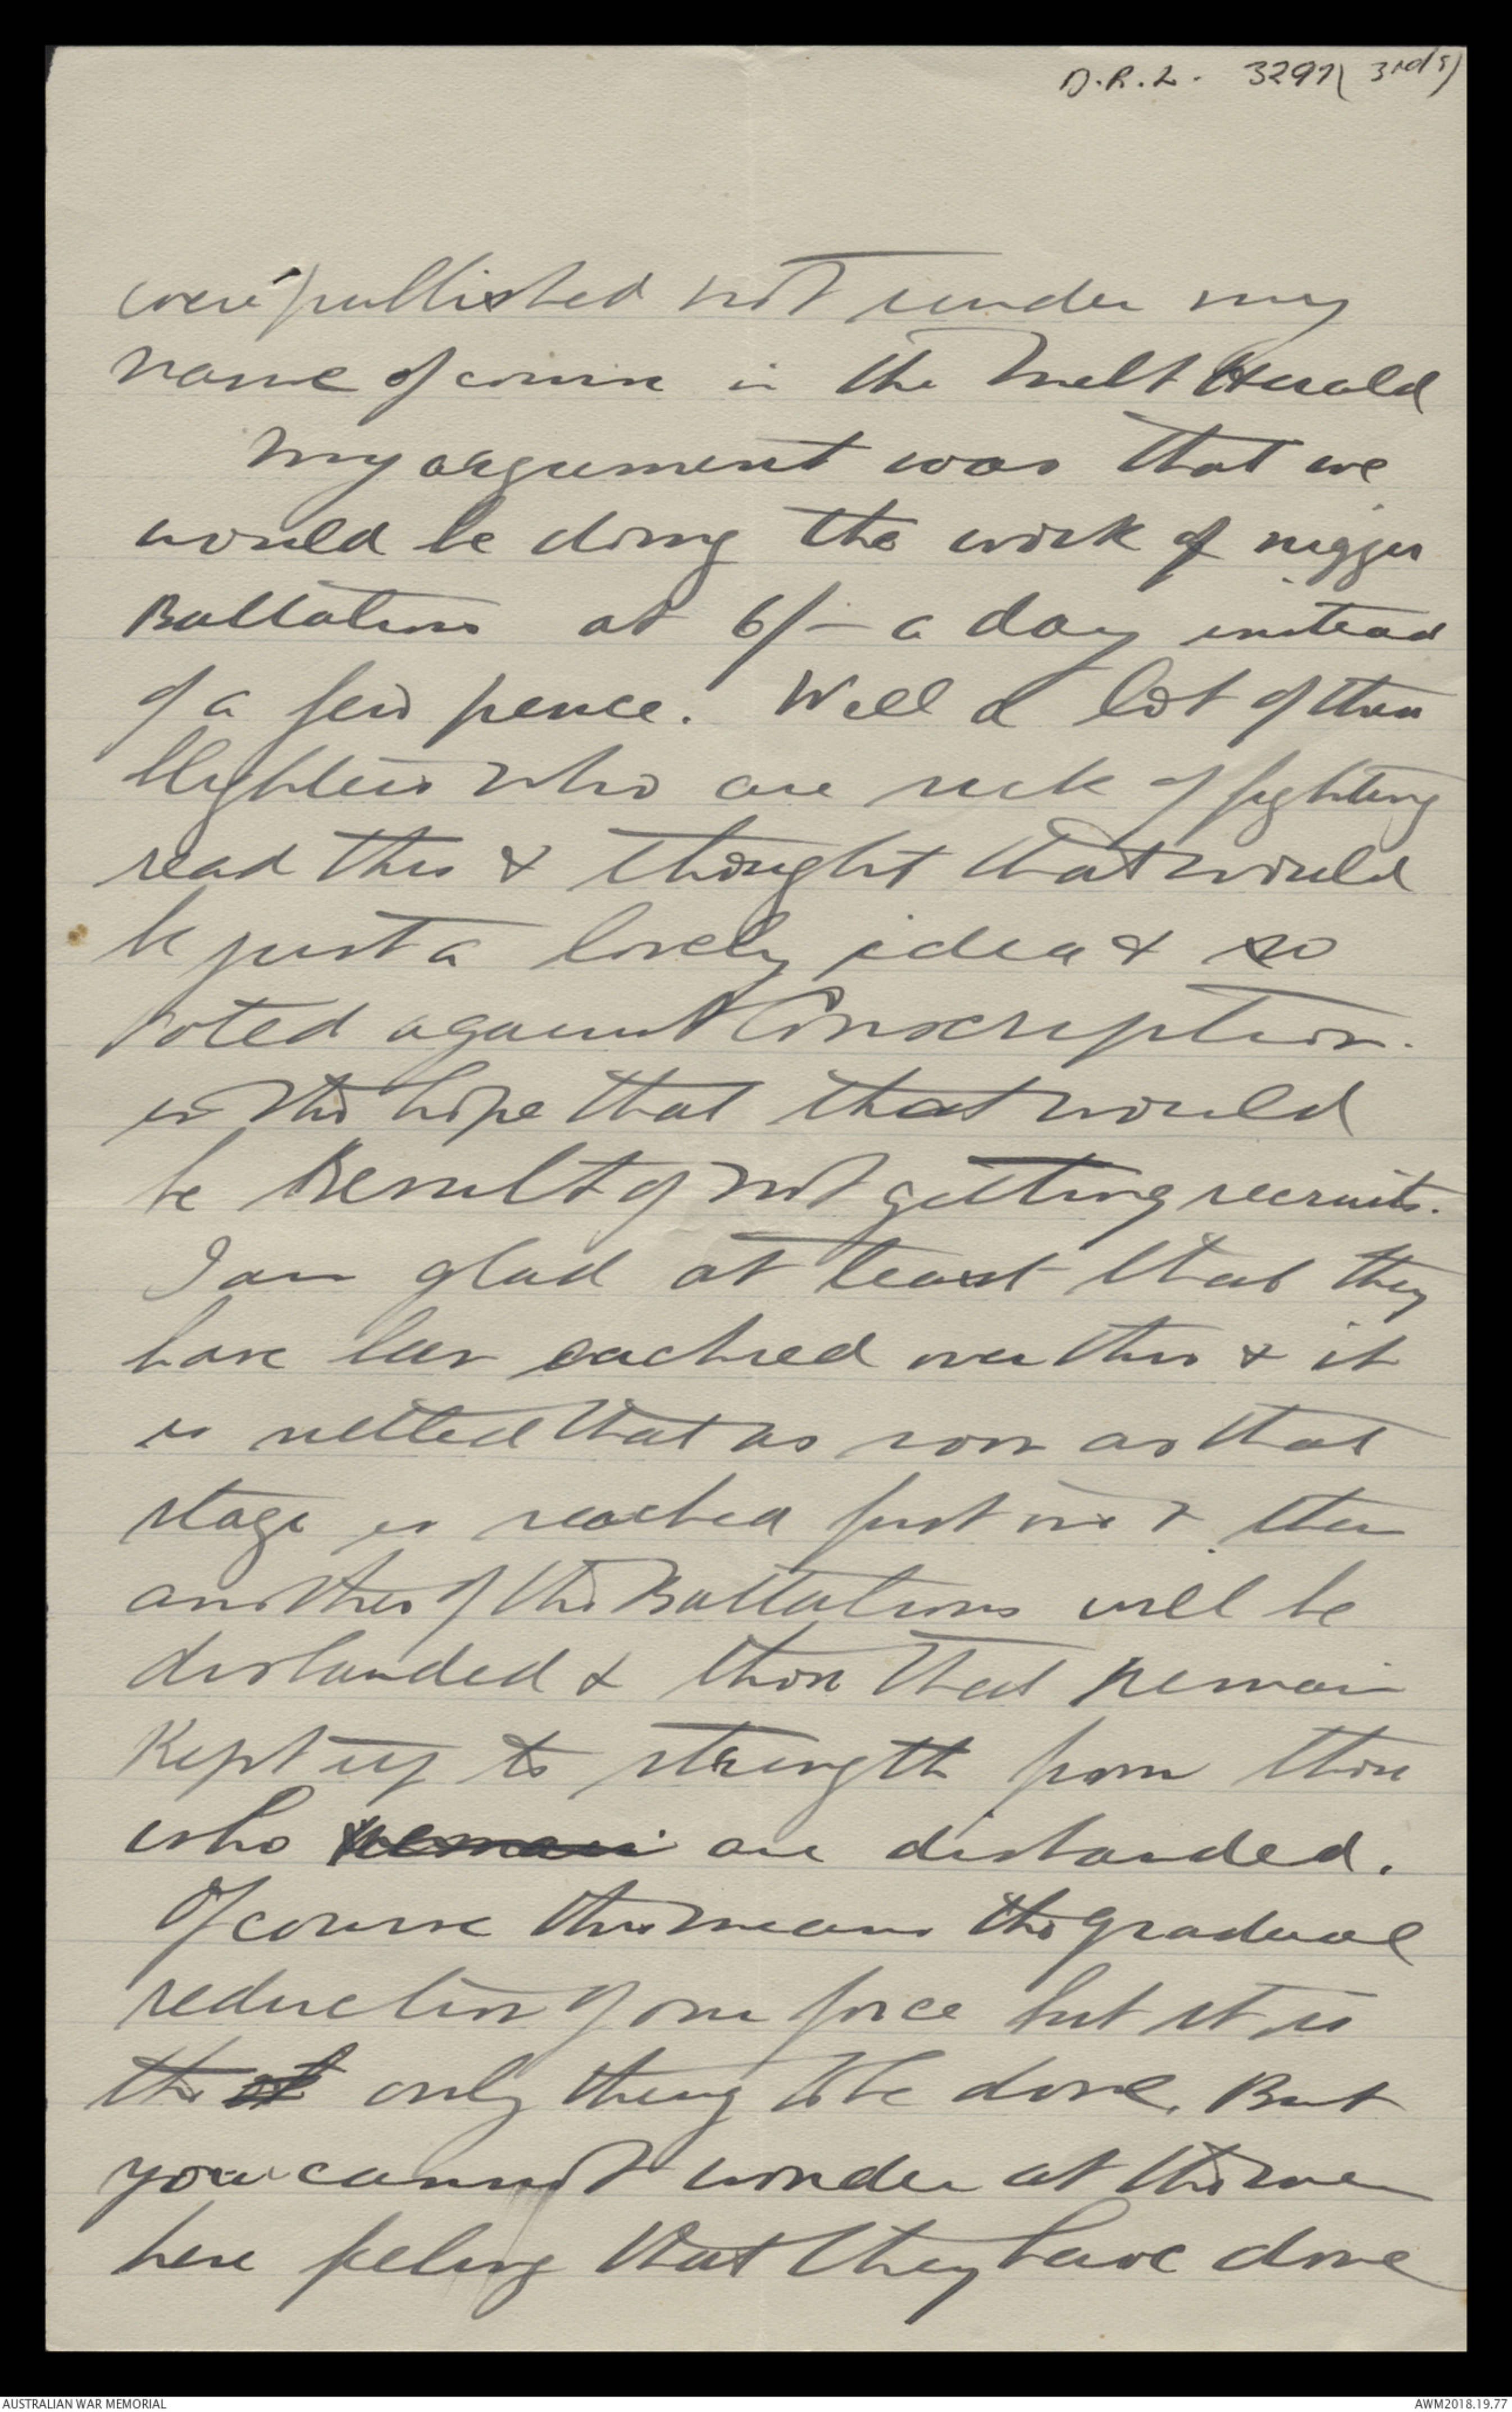 D.R.L. 3297 (3rds)
were published not under my
name of course in the Melb Herald
My argument was that we
would be doing the work of nigger
Battalions at 6/- a day instead
of a few pence. Well a lot of these
blighters who are sick of fighting
read this & thought that would
be just a lovely idea & so
voted against Conscription.
in the hope that that would
be Result of not getting recruits.
I am glad at least that they
have been euchred over this & it
is settled that as soon as that
stage is reached first one & then
another of the Battalions will be
disbanded & those that remain
Kept up to strength from those
who remain are disbanded.
Of course this means the gradual
reduction of our force but it is
the only thing to be done. But
you cannot wonder at the men
here feeling that they have done
AUSTRALIAN WAR MEMORIAL
AWM2018.19.77